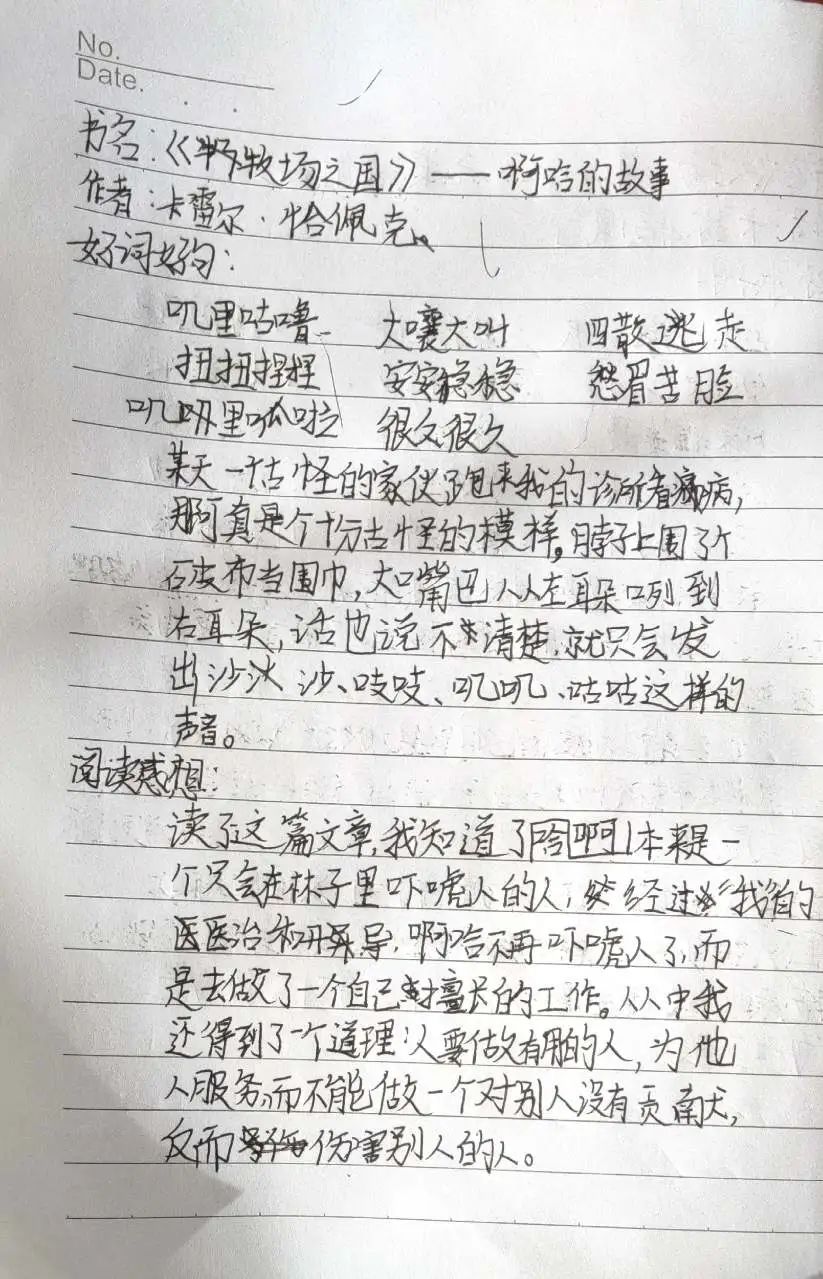 No.
Date.
书名:《牧场之国》——啊哈的故事
作者:卡雷尔·恰佩克。
好词好句:
叽里咕噜 大嚷大叫 四散逃走
扭扭捏捏 安安稳稳 愁眉苦脸
叽里呱啦 很久很久
某天一古怪的家伙跑来我的诊所看病,
那可真是个十分古怪的模样,脖子上围了个
破布当围巾,大嘴巴从左耳朵咧到
右耳朵,话也说不清楚,就只会发
出沙沙、吱吱、叽叽、咕咕这样的
声音。
阅读感想:
读了这篇文章,我知道了哈啊本来是一
个只会在林子里吓唬人的人,经过“我”的
医治和开导,啊哈不再吓唬人了,而
是去做了一个自己擅长的工作。从中我
还得到了一个道理:人要做有用的人,为他
人服务,而不能做一个对别人没有贡献,
反而伤害别人的人。